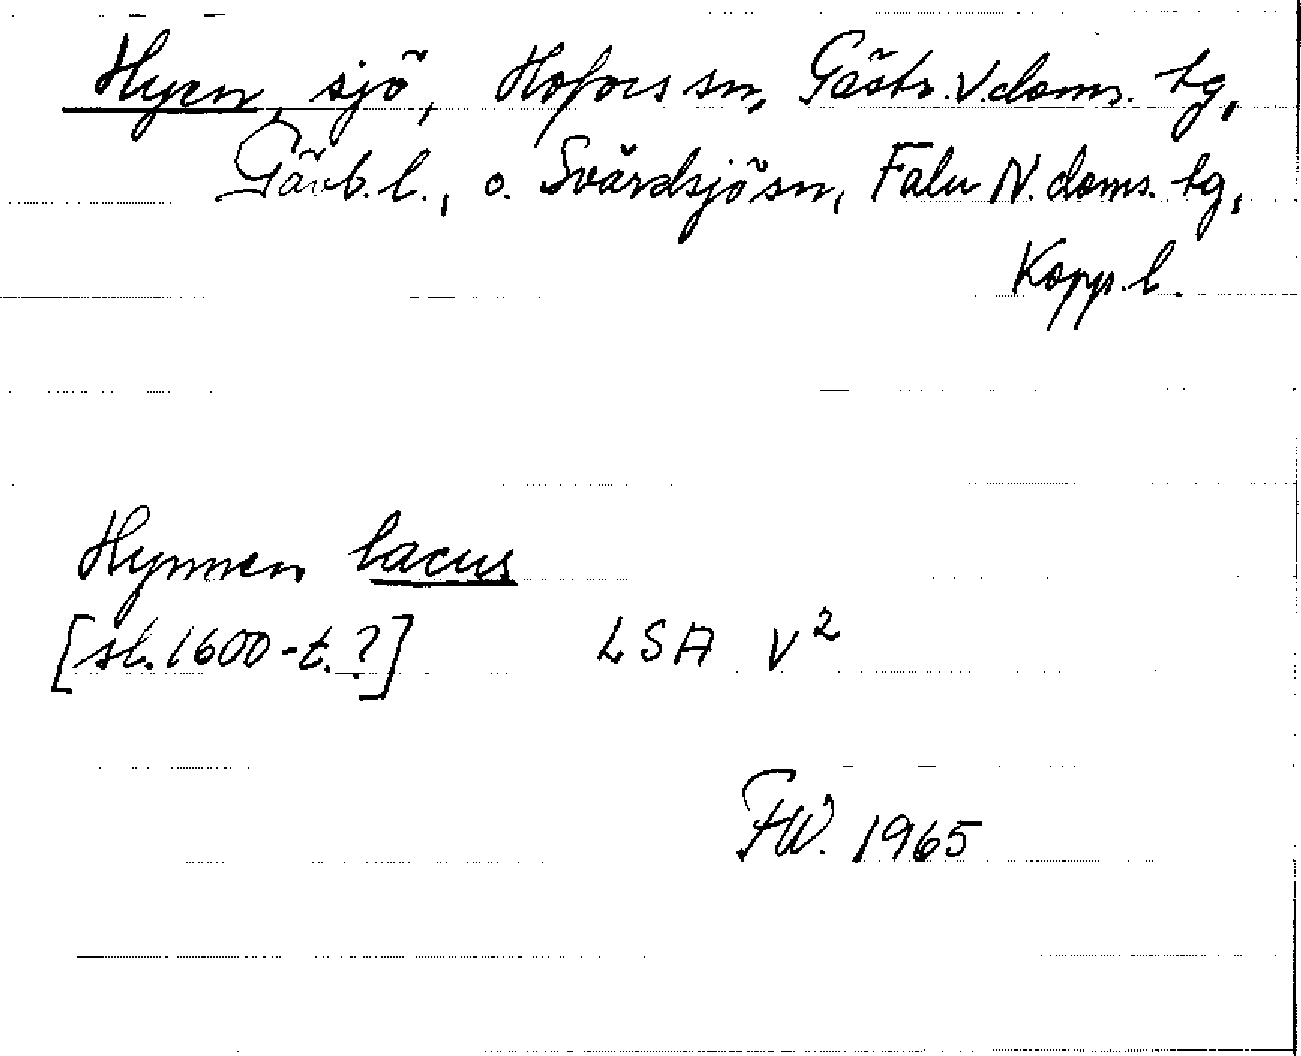 Hyen, sjö, Hofors sn, Gästr. V. doms. tg,
Gävb. l., o. Svärdsjö sn, Falu N. doms. tg,
Kopp. l.
Hynnen lacus
[sl. 1600-t.?] LSA V²
FW. 1965